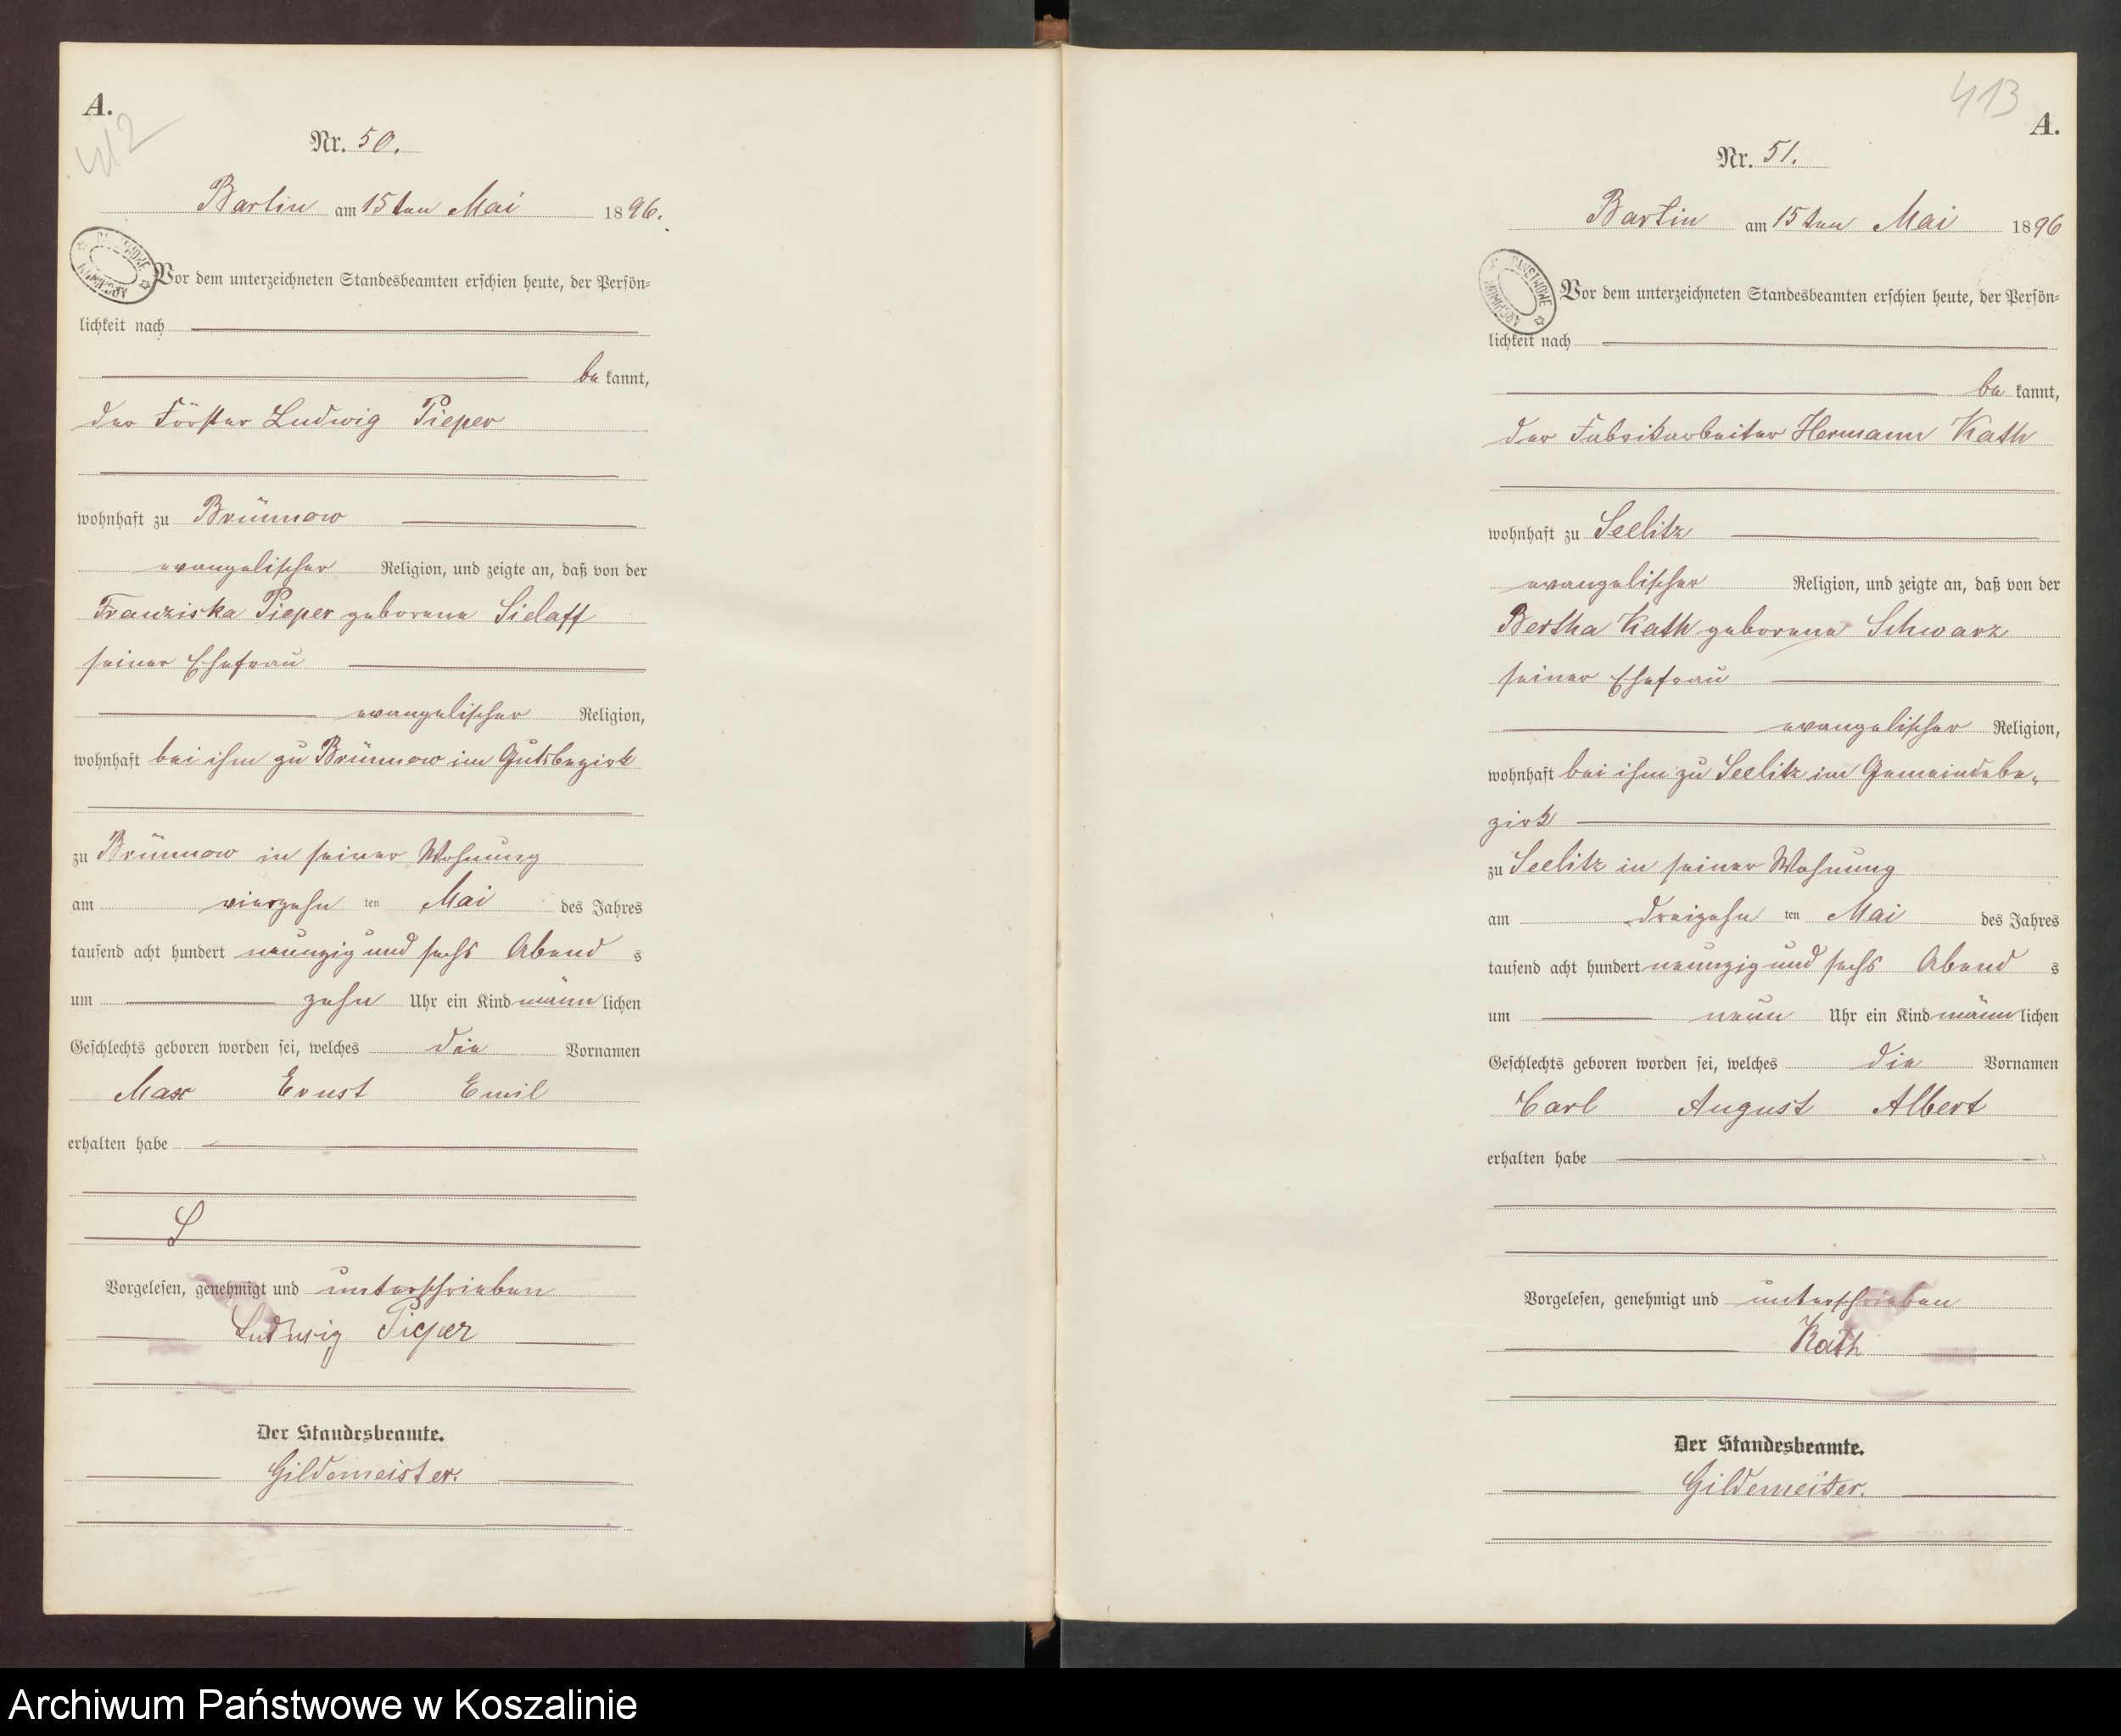 A.
412
Nr. 50.
Bartin am 15ten Mai 1896.
Vor dem unterzeichneten Standesbeamten erschien heute, der Persön-
lichkeit nach
be kannt,
der Förster Ludwig Pieper
wohnhaft zu Brünnow
evangelischer Religion, und zeigte an, daß von der
Franziska Pieper geborene Sielaff
seiner Ehefrau
evangelischer Religion,
wohnhaft bei ihm zu Brünnow im Gutsbezirk
zu Brünnow in seiner Wohnung
am vierzehn ten Mai des Jahres
tausend acht hundert neunzig und sechs Abend s
um zehn Uhr ein Kind männ lichen
Geschlechts geboren worden sei, welches die Vornamen
Max Ernst Emil
erhalten habe
Vorgelesen, genehmigt und unterschrieben
Ludwig Pieper
Der Standesbeamte.
Gildemeister.
413
A.
Nr. 51.
Bartin am 15ten Mai 1896
PAŃSTWOWE ARCHIWUM
Vor dem unterzeichneten Standesbeamten erschien heute, der Persön-
lichkeit nach
be kannt,
der Fabrikarbeiter Hermann Kath
wohnhaft zu Seelitz
evangelischer Religion, und zeigte an, daß von der
Bertha Kath geborene Schwarz
seiner Ehefrau
evangelischer Religion,
wohnhaft bei ihm zu Seelitz im Gemeindebe-
zirk
zu Seelitz in seiner Wohnung
am dreizehn ten Mai des Jahres
tausend acht hundert neunzig und sechs Abend s
um neun Uhr ein Kind männ lichen
Geschlechts geboren worden sei, welches die Vornamen
Carl August Albert
erhalten habe
Vorgelesen, genehmigt und unterschrieben
Kath
Der Standesbeamte.
Gildemeister.
Archiwum Państwowe w Koszalinie